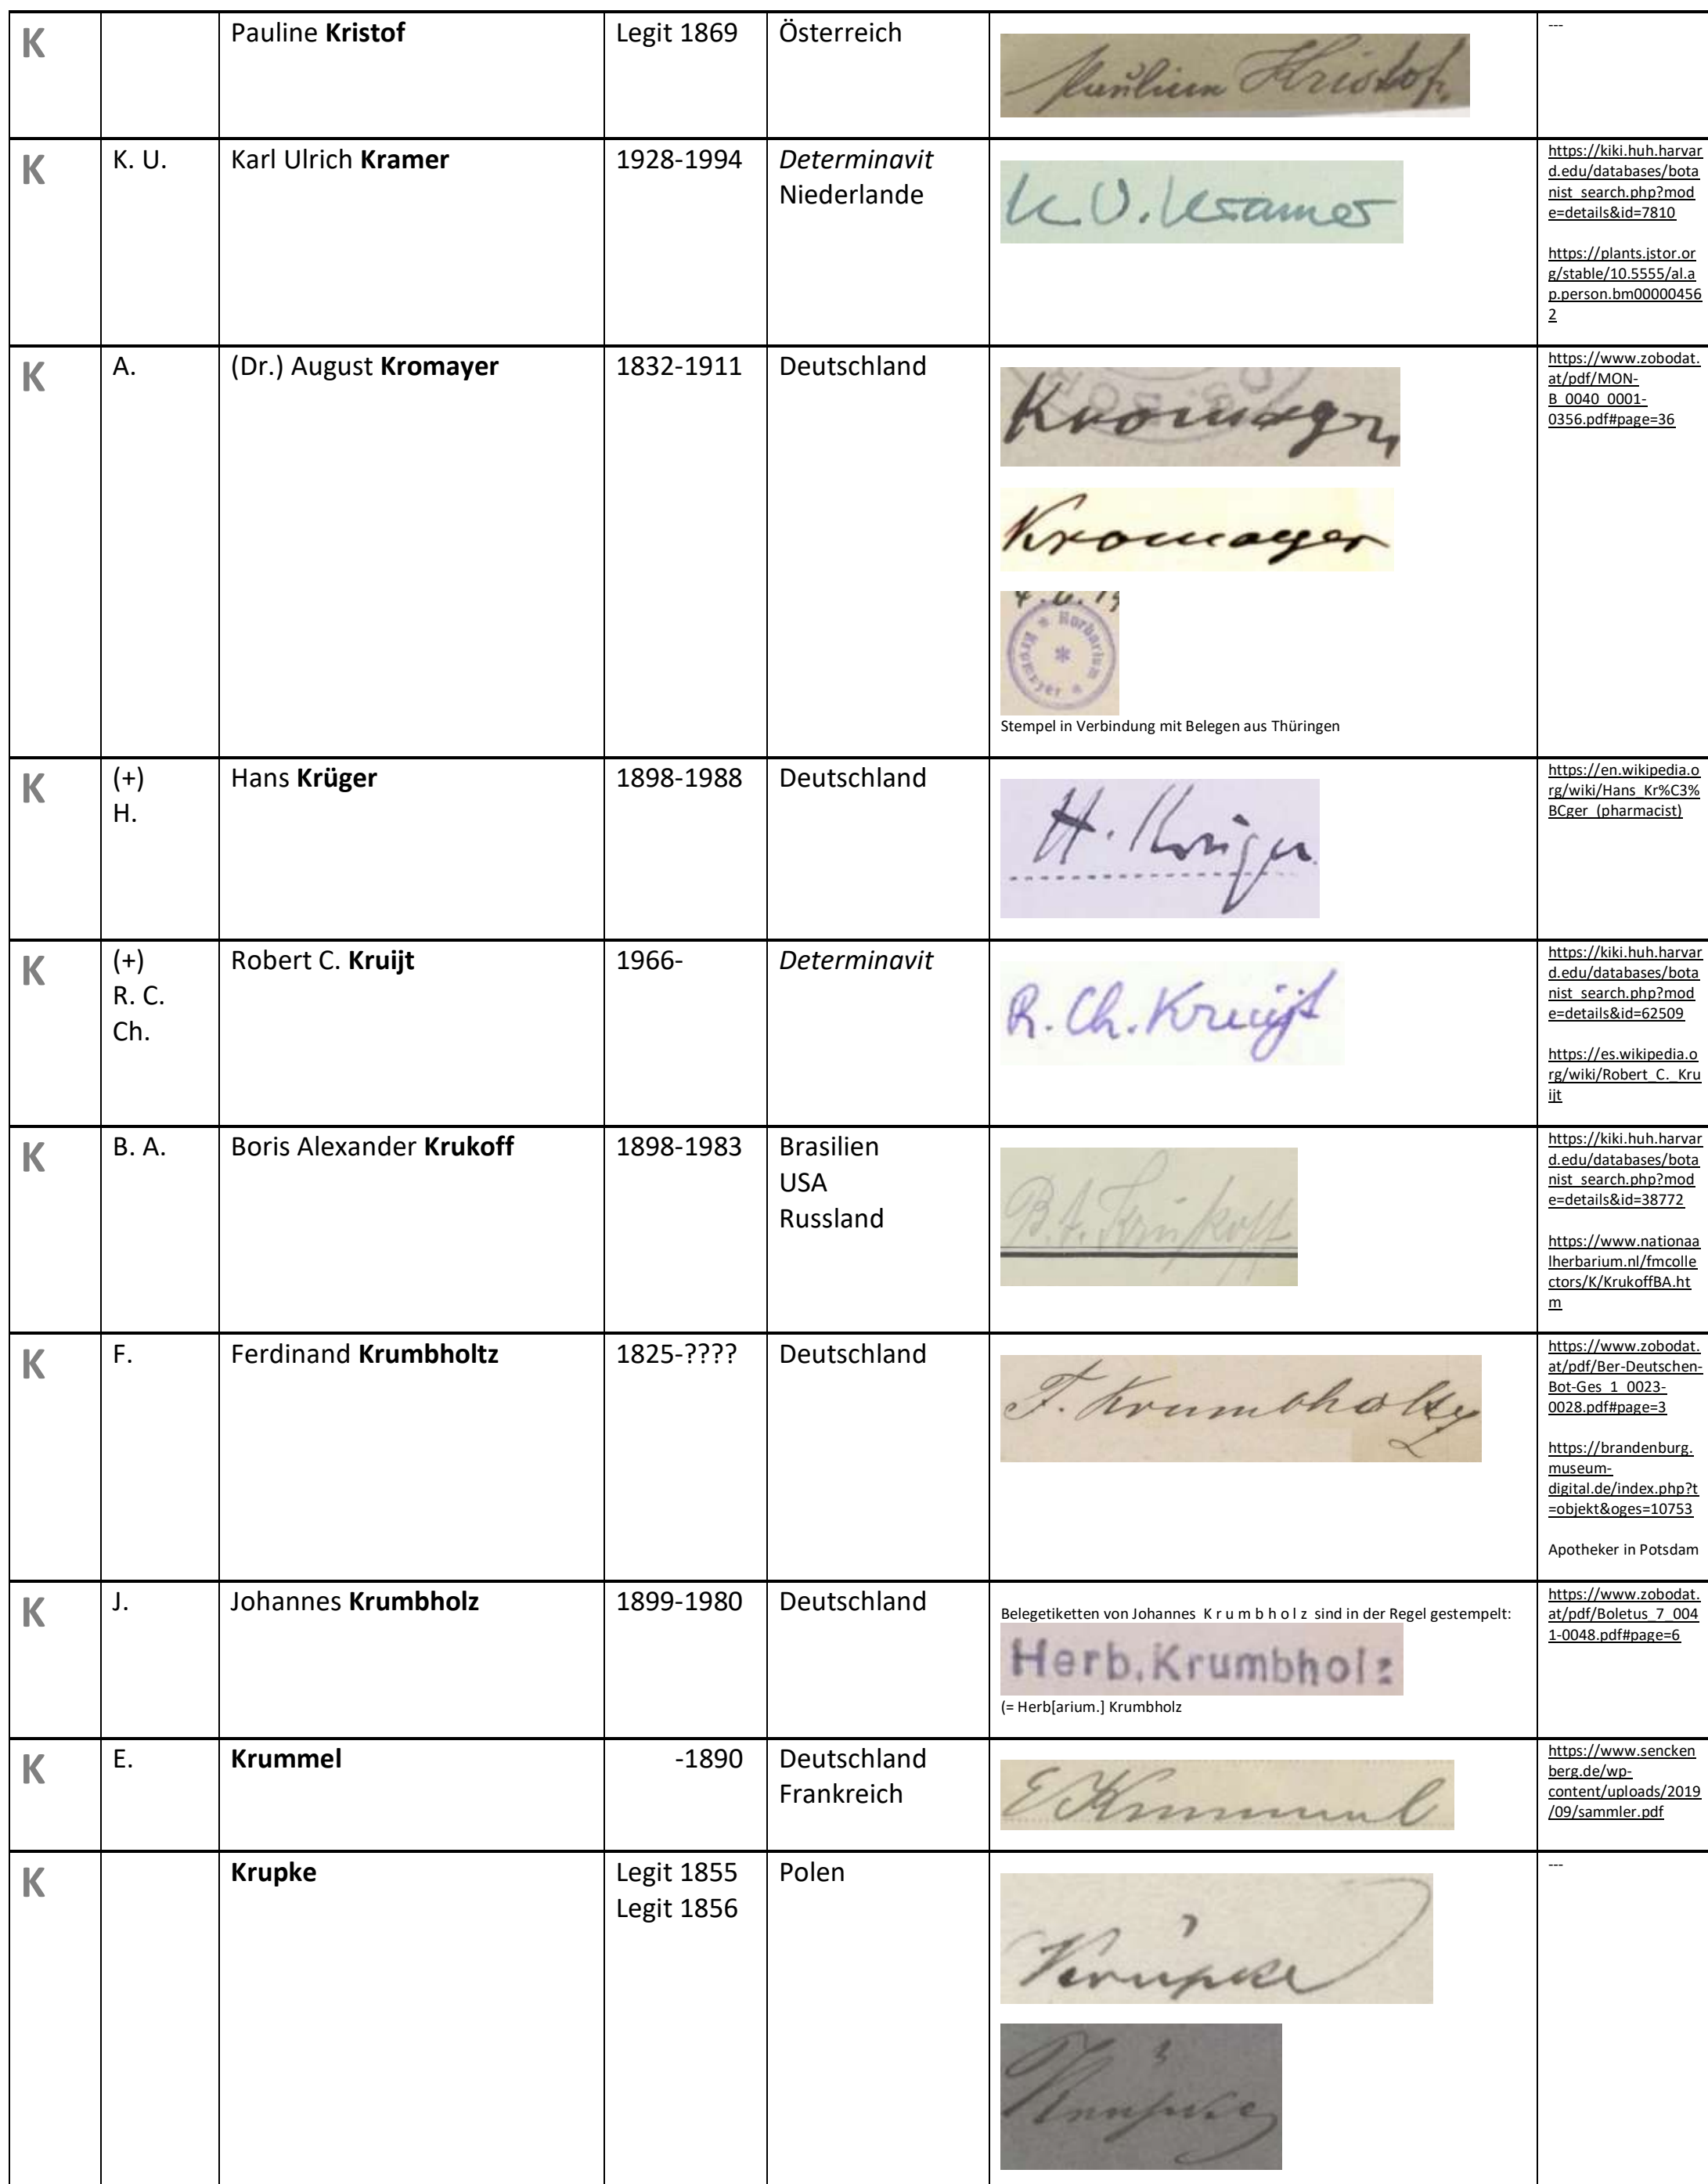 K Pauline Kristof Legit 1869 Österreich ---
Pauline Kristof.
K K. U. Karl Ulrich Kramer 1928-1994 Determinavit
Niederlande
K.U. Kramer
https://kiki.huh.harvar
d.edu/databases/bota
nist_search.php?mod
e=details&id=7810
https://plants.jstor.or
g/stable/10.5555/al.a
p.person.bm00000456
2
K A. (Dr.) August Kromayer 1832-1911 Deutschland
Kromayer
Kromayer
Herbarium
Kromayer
Stempel in Verbindung mit Belegen aus Thüringen
https://www.zobodat.
at/pdf/MON-
B_0040_0001-
0356.pdf#page=36
K (+)
H.
Hans Krüger 1898-1988 Deutschland
H. Krüger
https://en.wikipedia.o
rg/wiki/Hans_Kr%C3%
BCger_(pharmacist)
K (+)
R. C.
Ch.
Robert C. Kruijt 1966- Determinavit
R. Ch. Kruijt
https://kiki.huh.harvar
d.edu/databases/bota
nist_search.php?mod
e=details&id=62509
https://es.wikipedia.o
rg/wiki/Robert_C._Kru
ijt
K B. A. Boris Alexander Krukoff 1898-1983 Brasilien
USA
Russland
B.A. Krukoff
https://kiki.huh.harvar
d.edu/databases/bota
nist_search.php?mod
e=details&id=38772
https://www.nationaa
lherbarium.nl/fmcolle
ctors/K/KrukoffBA.ht
m
K F. Ferdinand Krumbholtz 1825-???? Deutschland
F. Krumbholtz
https://www.zobodat.
at/pdf/Ber-Deutschen-
Bot-Ges_1_0023-
0028.pdf#page=3
https://brandenburg.
museum-
digital.de/index.php?t
=objekt&oges=10753
Apotheker in Potsdam
K J. Johannes Krumbholz 1899-1980 Deutschland
Belegetiketten von Johannes K r u m b h o l z sind in der Regel gestempelt:
Herb. Krumbholz
(= Herb[arium.] Krumbholz
https://www.zobodat.
at/pdf/Boletus_7_004
1-0048.pdf#page=6
K E. Krummel -1890 Deutschland
Frankreich
E Krummel
https://www.sencken
berg.de/wp-
content/uploads/2019
/09/sammler.pdf
K Krupke Legit 1855
Legit 1856
Polen ---
Krupke
Krupke